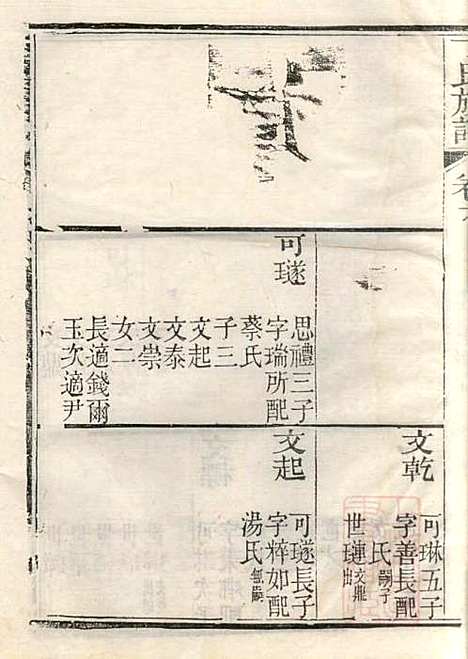 氏族譜
卷
可璲
思禮三子
字瑞所配
蔡氏
子三
文起
文泰
文崇
女二
長適錢爾
玉次適尹
文乾
可琳五子
字善長配
氏嗣子
世璉文龍出
文起
可璲長子
字粹如配
湯氏無嗣